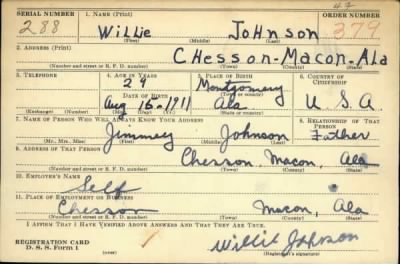 42
SERIAL NUMBER 1. NAME (Print) ORDER NUMBER
288 Willie Johnson 379
(First) (Middle) (Last)
2. ADDRESS (Print)
Chesson-Macon-Ala
(Number and street or R. F. D. number) (Town) (County) (State)
3. TELEPHONE 4. AGE IN YEARS 5. PLACE OF BIRTH 6. COUNTRY OF CITIZENSHIP
29 Montgomery
DATE OF BIRTH (Town or county)
Aug 16-1911 Ala U.S.A.
(Exchange) (Number) (Mo.) (Day) (Yr.) (State or country)
7. NAME OF PERSON WHO WILL ALWAYS KNOW YOUR ADDRESS 8. RELATIONSHIP OF THAT PERSON
Jimmey Johnson Father
(Mr., Mrs., Miss) (First) (Middle) (Last)
9. ADDRESS OF THAT PERSON
Chesson, Macon, Ala
(Number and street or R. F. D. number) (Town) (County) (State)
10. EMPLOYER'S NAME
Self
11. PLACE OF EMPLOYMENT OR BUSINESS
Chesson Macon, Ala
(Number and street or R. F. D. number) (Town) (County) (State)
I AFFIRM THAT I HAVE VERIFIED ABOVE ANSWERS AND THAT THEY ARE TRUE.
REGISTRATION CARD
D. S. S. Form 1 Willie Johnson
(Registrant's signature)